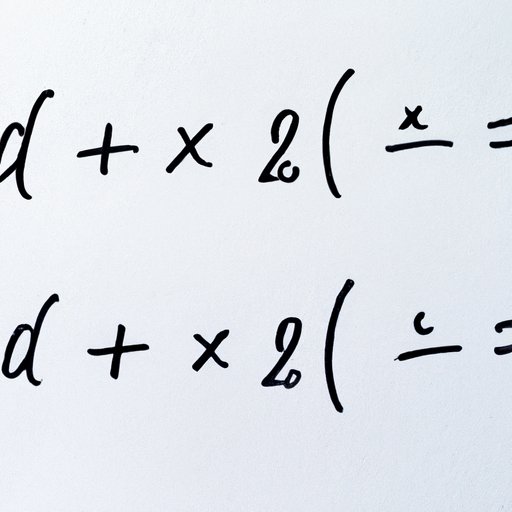 d + x 2( x =
d + x 2( c =